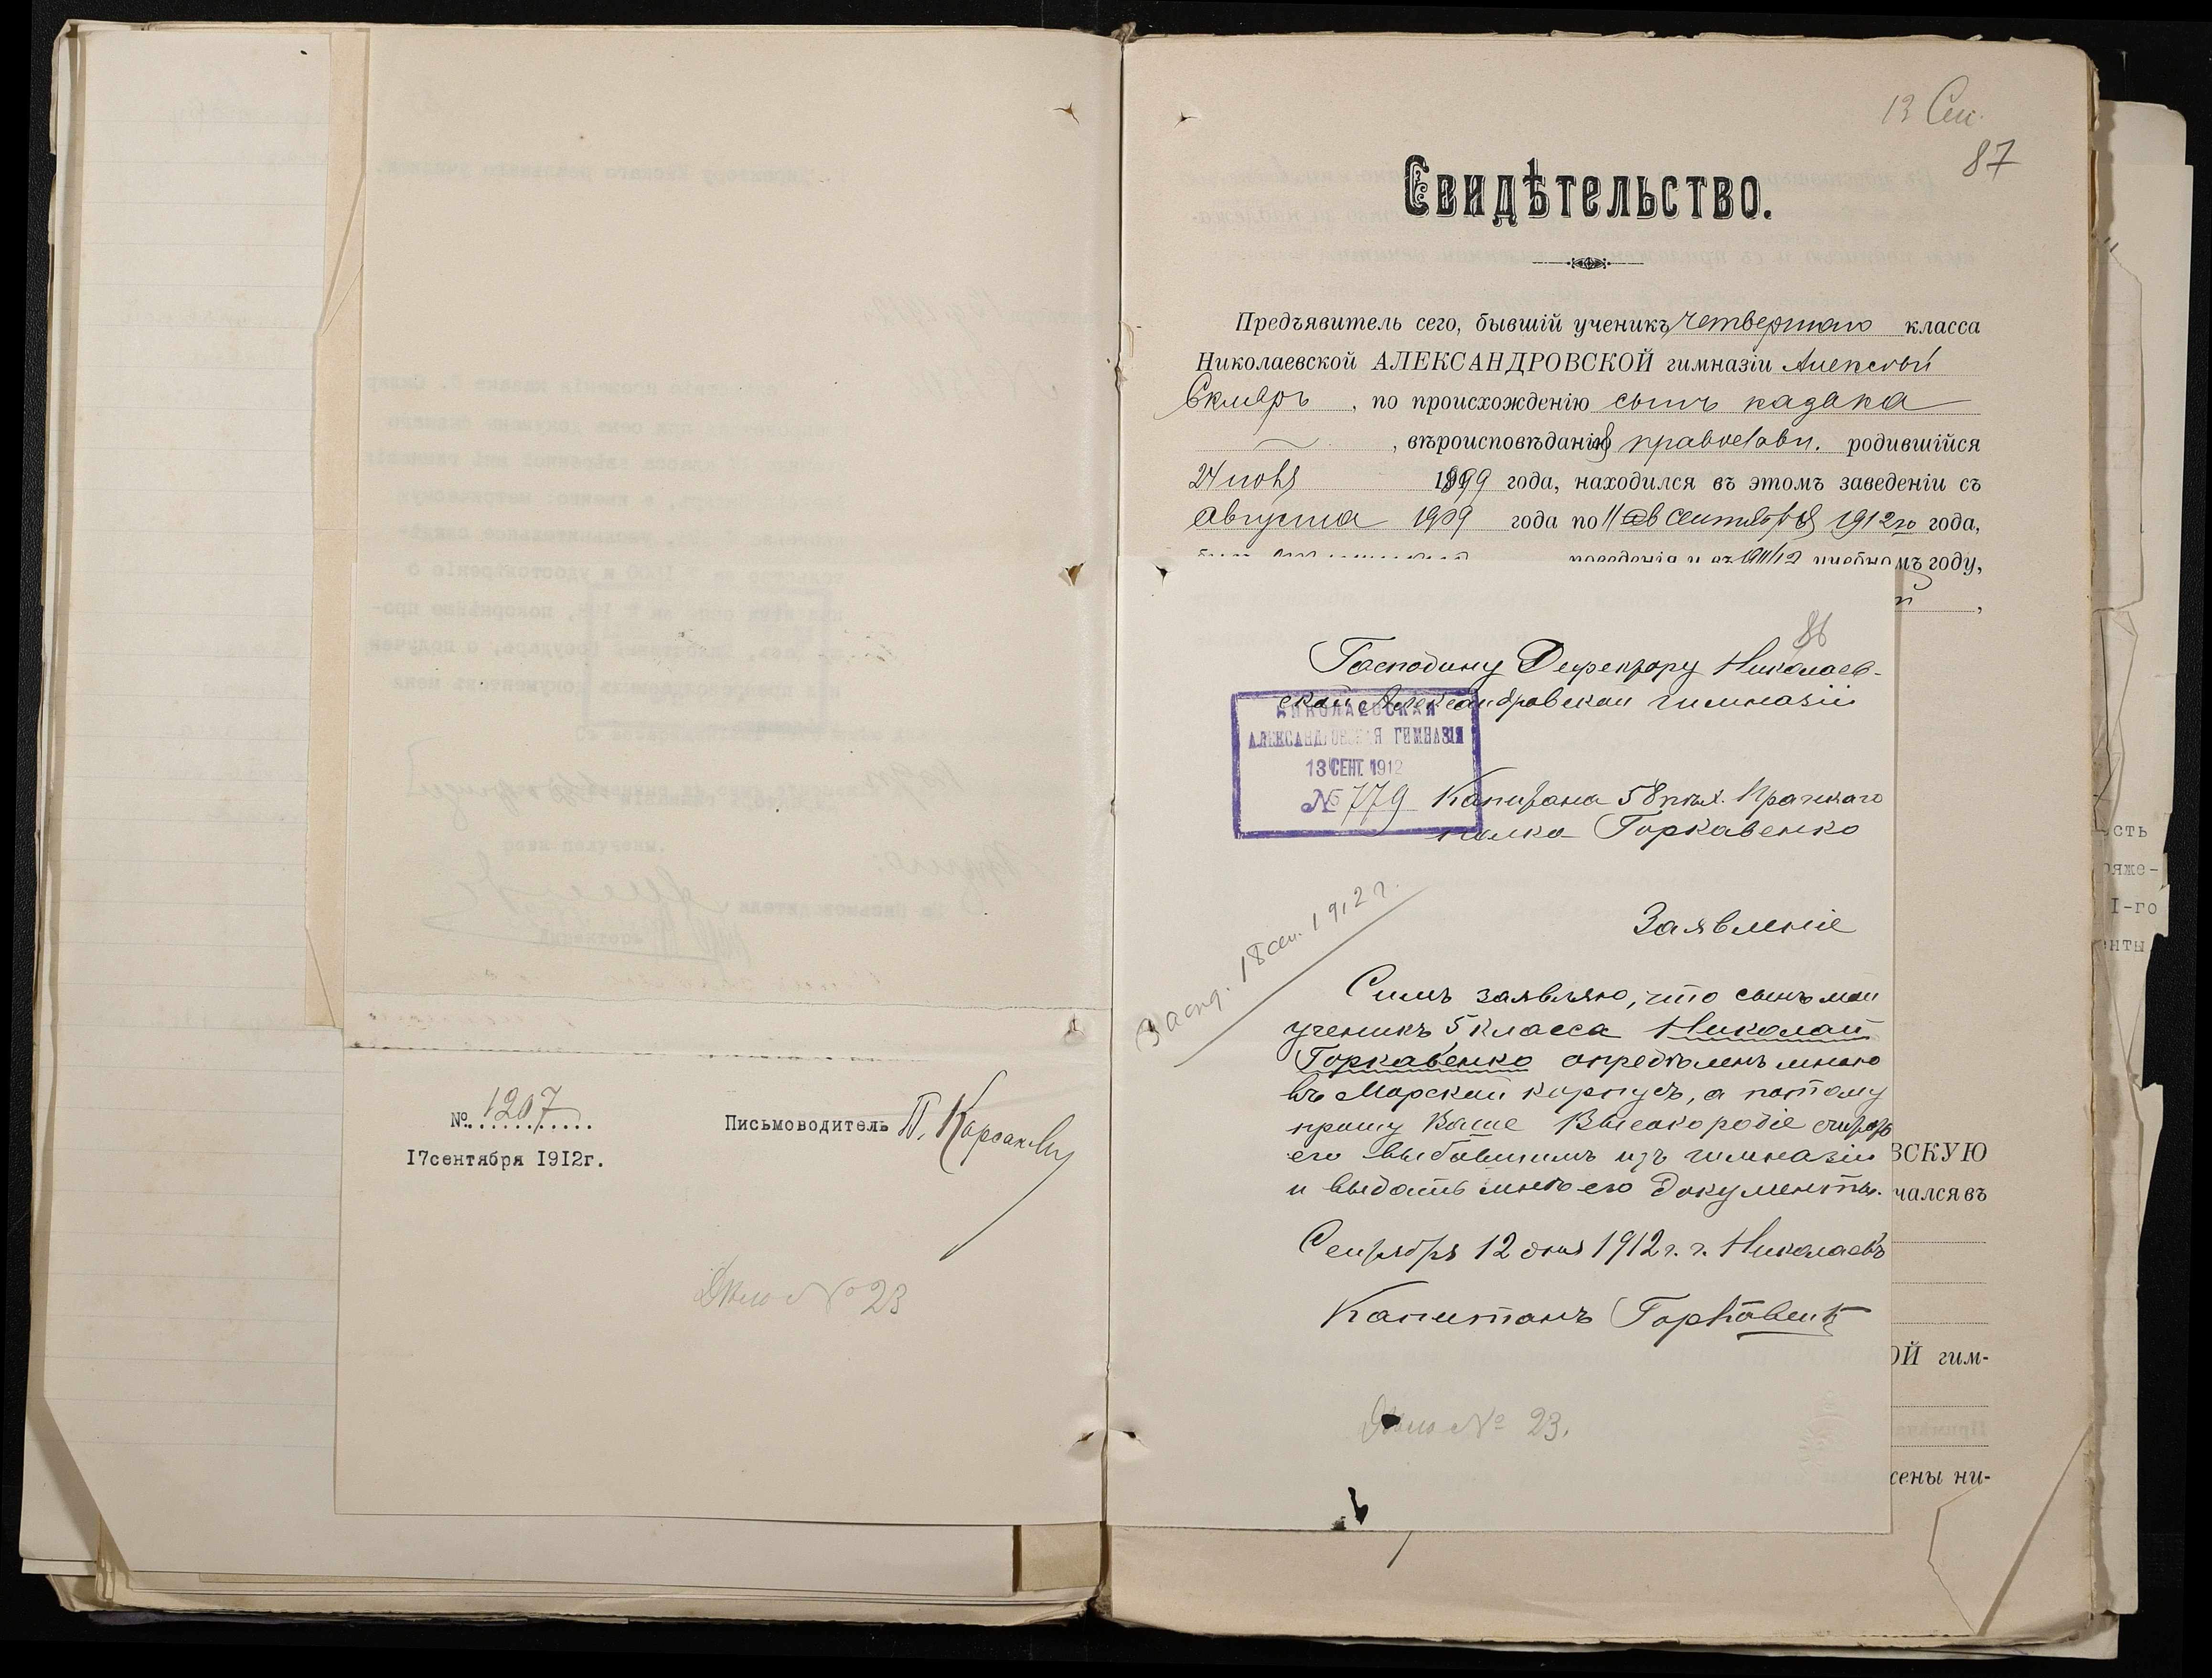 № 1207
17сентября 1912г.
Письмоводитель П.
Дѣло № 23
13 Сен.
87
Свидѣтельство.
Предъявитель сего, бывшій ученикъ четвертаго класса
Николаевской АЛЕКСАНДРОВСКОЙ гимназіи Алексѣй
Скляръ, по происхожденію сынъ казака
, вѣроисповѣданія православн. родившійся
24 1899 года, находился въ этомъ заведеніи съ
Августа 1909 года по 11 сентября 1912 го года,
поведенія и въ 1911/12 учебномъ году,
86
Господину Директору Николаев-
ской Александровской гимназіи
НИКОЛАЕВСКАЯ
АЛЕКСАНДРОВСКАЯ ГИМНАЗІЯ
13 СЕНТ. 1912
№ 779
Капитана 58 пѣх. Пражскаго
полка Горкавенко
18 сен. 1912 г.
Заявленіе
Симъ заявляю, что сынъ мой
ученикъ 5 класса Николай
Горкавенко опредѣленъ мною
въ Морской корпусъ, а потому
прошу Ваше Высокородіе считать
его выбывшимъ изъ гимназіи
и выдать мнѣ его документы.
Сентября 12 дня 1912 г. г. Николаевъ
Капитанъ Горкавенко
Дѣло № 23.
ВСКУЮ
чался въ
ОЙ гим-
жены ни-
сть
ряже-
I-го
енты